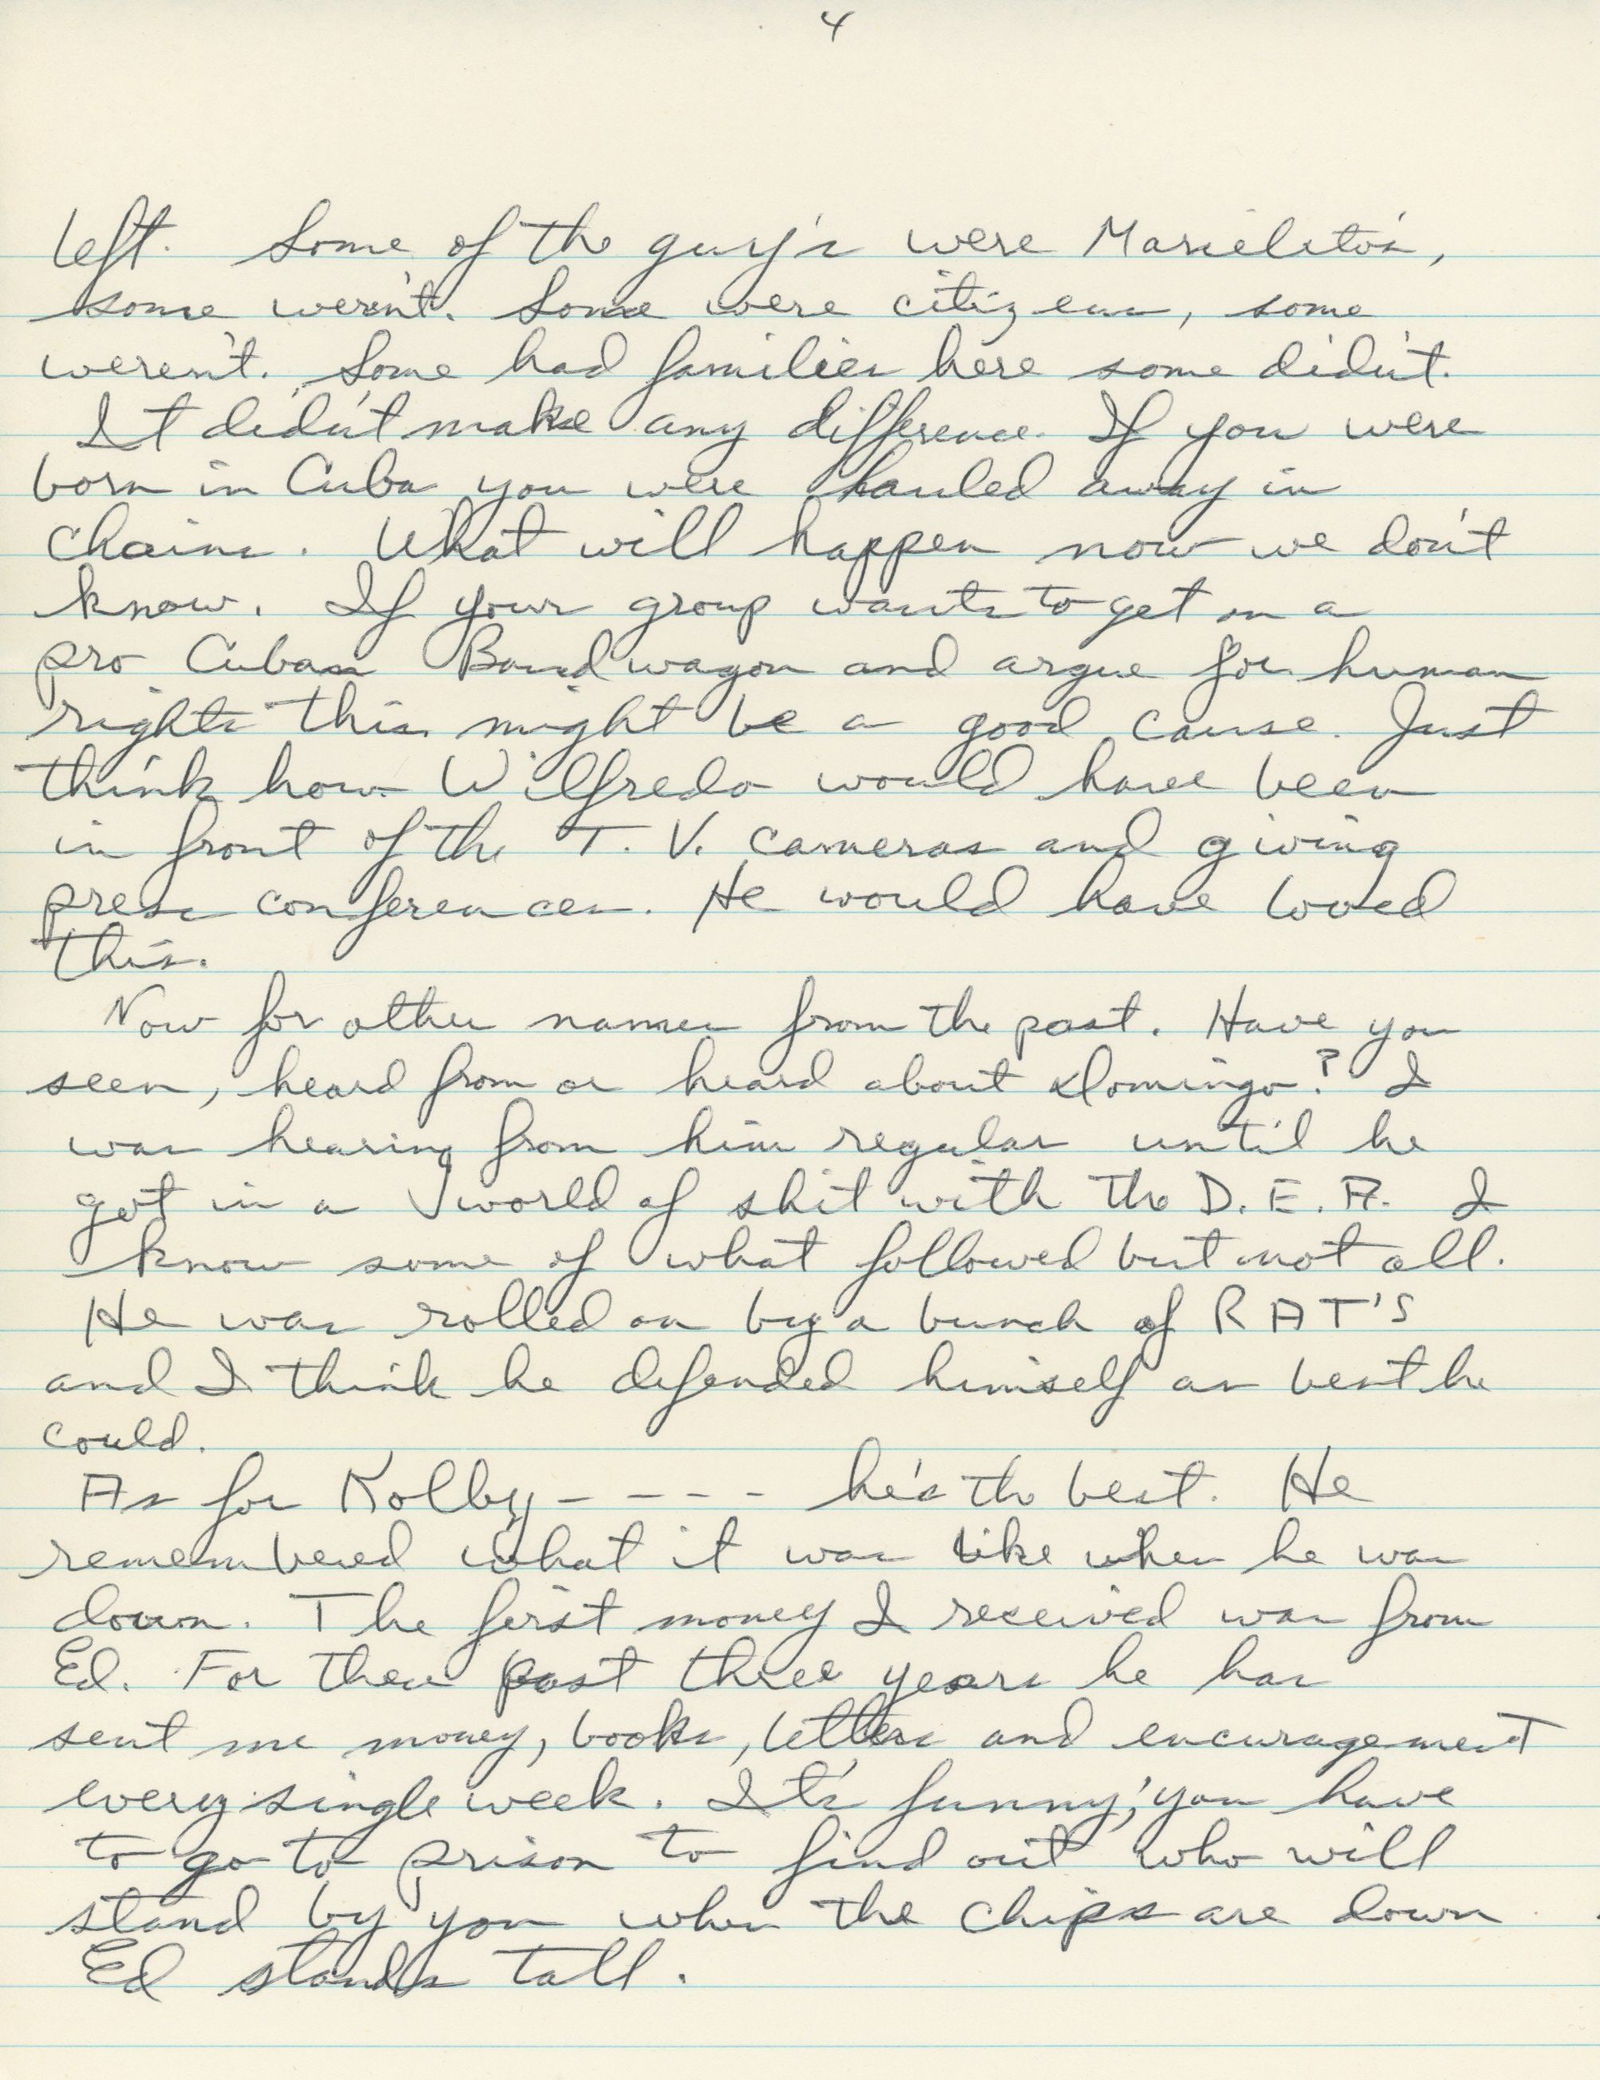 4
left. Some of the guy's were Marielito's,
some weren't. Some were citizens, some
weren't. Some had families here some didn't.
It didn't make any difference. If you were
born in Cuba you were hauled away in
chains. What will happen now we don't
know. If your group wants to get on a
pro Cuban Bandwagon and argue for human
rights this might be a good cause. Just
think how Wilfredo would have been
in front of the T.V. cameras and giving
press conferences. He would have loved
this.
Now for other names from the past. Have you
seen, heard from or heard about Domingo? I
was hearing from him regular until he
got in a world of shit with the D.E.A. I
know some of what followed but not all.
He was rolled on by a bunch of RAT'S
and I think he defended himself as best he
could.
As for Kolby - - - - he's the best. He
remembered what it was like when he was
down. The first money I received was from
Ed. For these past three years he has
sent me money, books, letters and encuragement
every single week. It's funny, you have
to go to prison to find out who will
stand by you when the chips are down.
Ed stands tall.